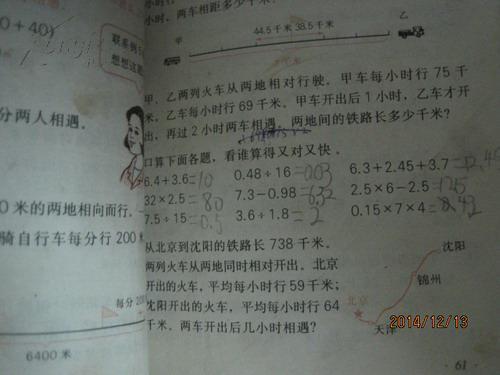 0 + 40)
联系例
想想这
分两人相遇。
0 米的两地相向而行。
骑自行车每分行 200
每分 200
6400 米
小时，两车相距多少千米
甲
44.5千米 38.5千米
乙
甲、乙两列火车从两地相对行驶。甲车每小时行 75 千
米，乙车每小时行 69 千米。甲车开出后 1 小时，乙车才开
出，再过 2 小时两车相遇。两地间的铁路长多少千米？
口算下面各题，看谁算得又对又快。
6.4+3.6=10 0.48÷16=0.03 6.3+2.45+3.7=12.45
32×2.5=80 7.3−0.98=6.32 2.5×6−2.5=
7.5÷15=0.5 3.6÷1.8=2 0.15×7×4=
从北京到沈阳的铁路长 738 千米。
两列火车从两地同时相对开出。北京
开出的火车，平均每小时行 59 千米；
沈阳开出的火车，平均每小时行 64
千米。两车开出后几小时相遇？
沈阳
锦州
北京
天津
2014/12/13
61